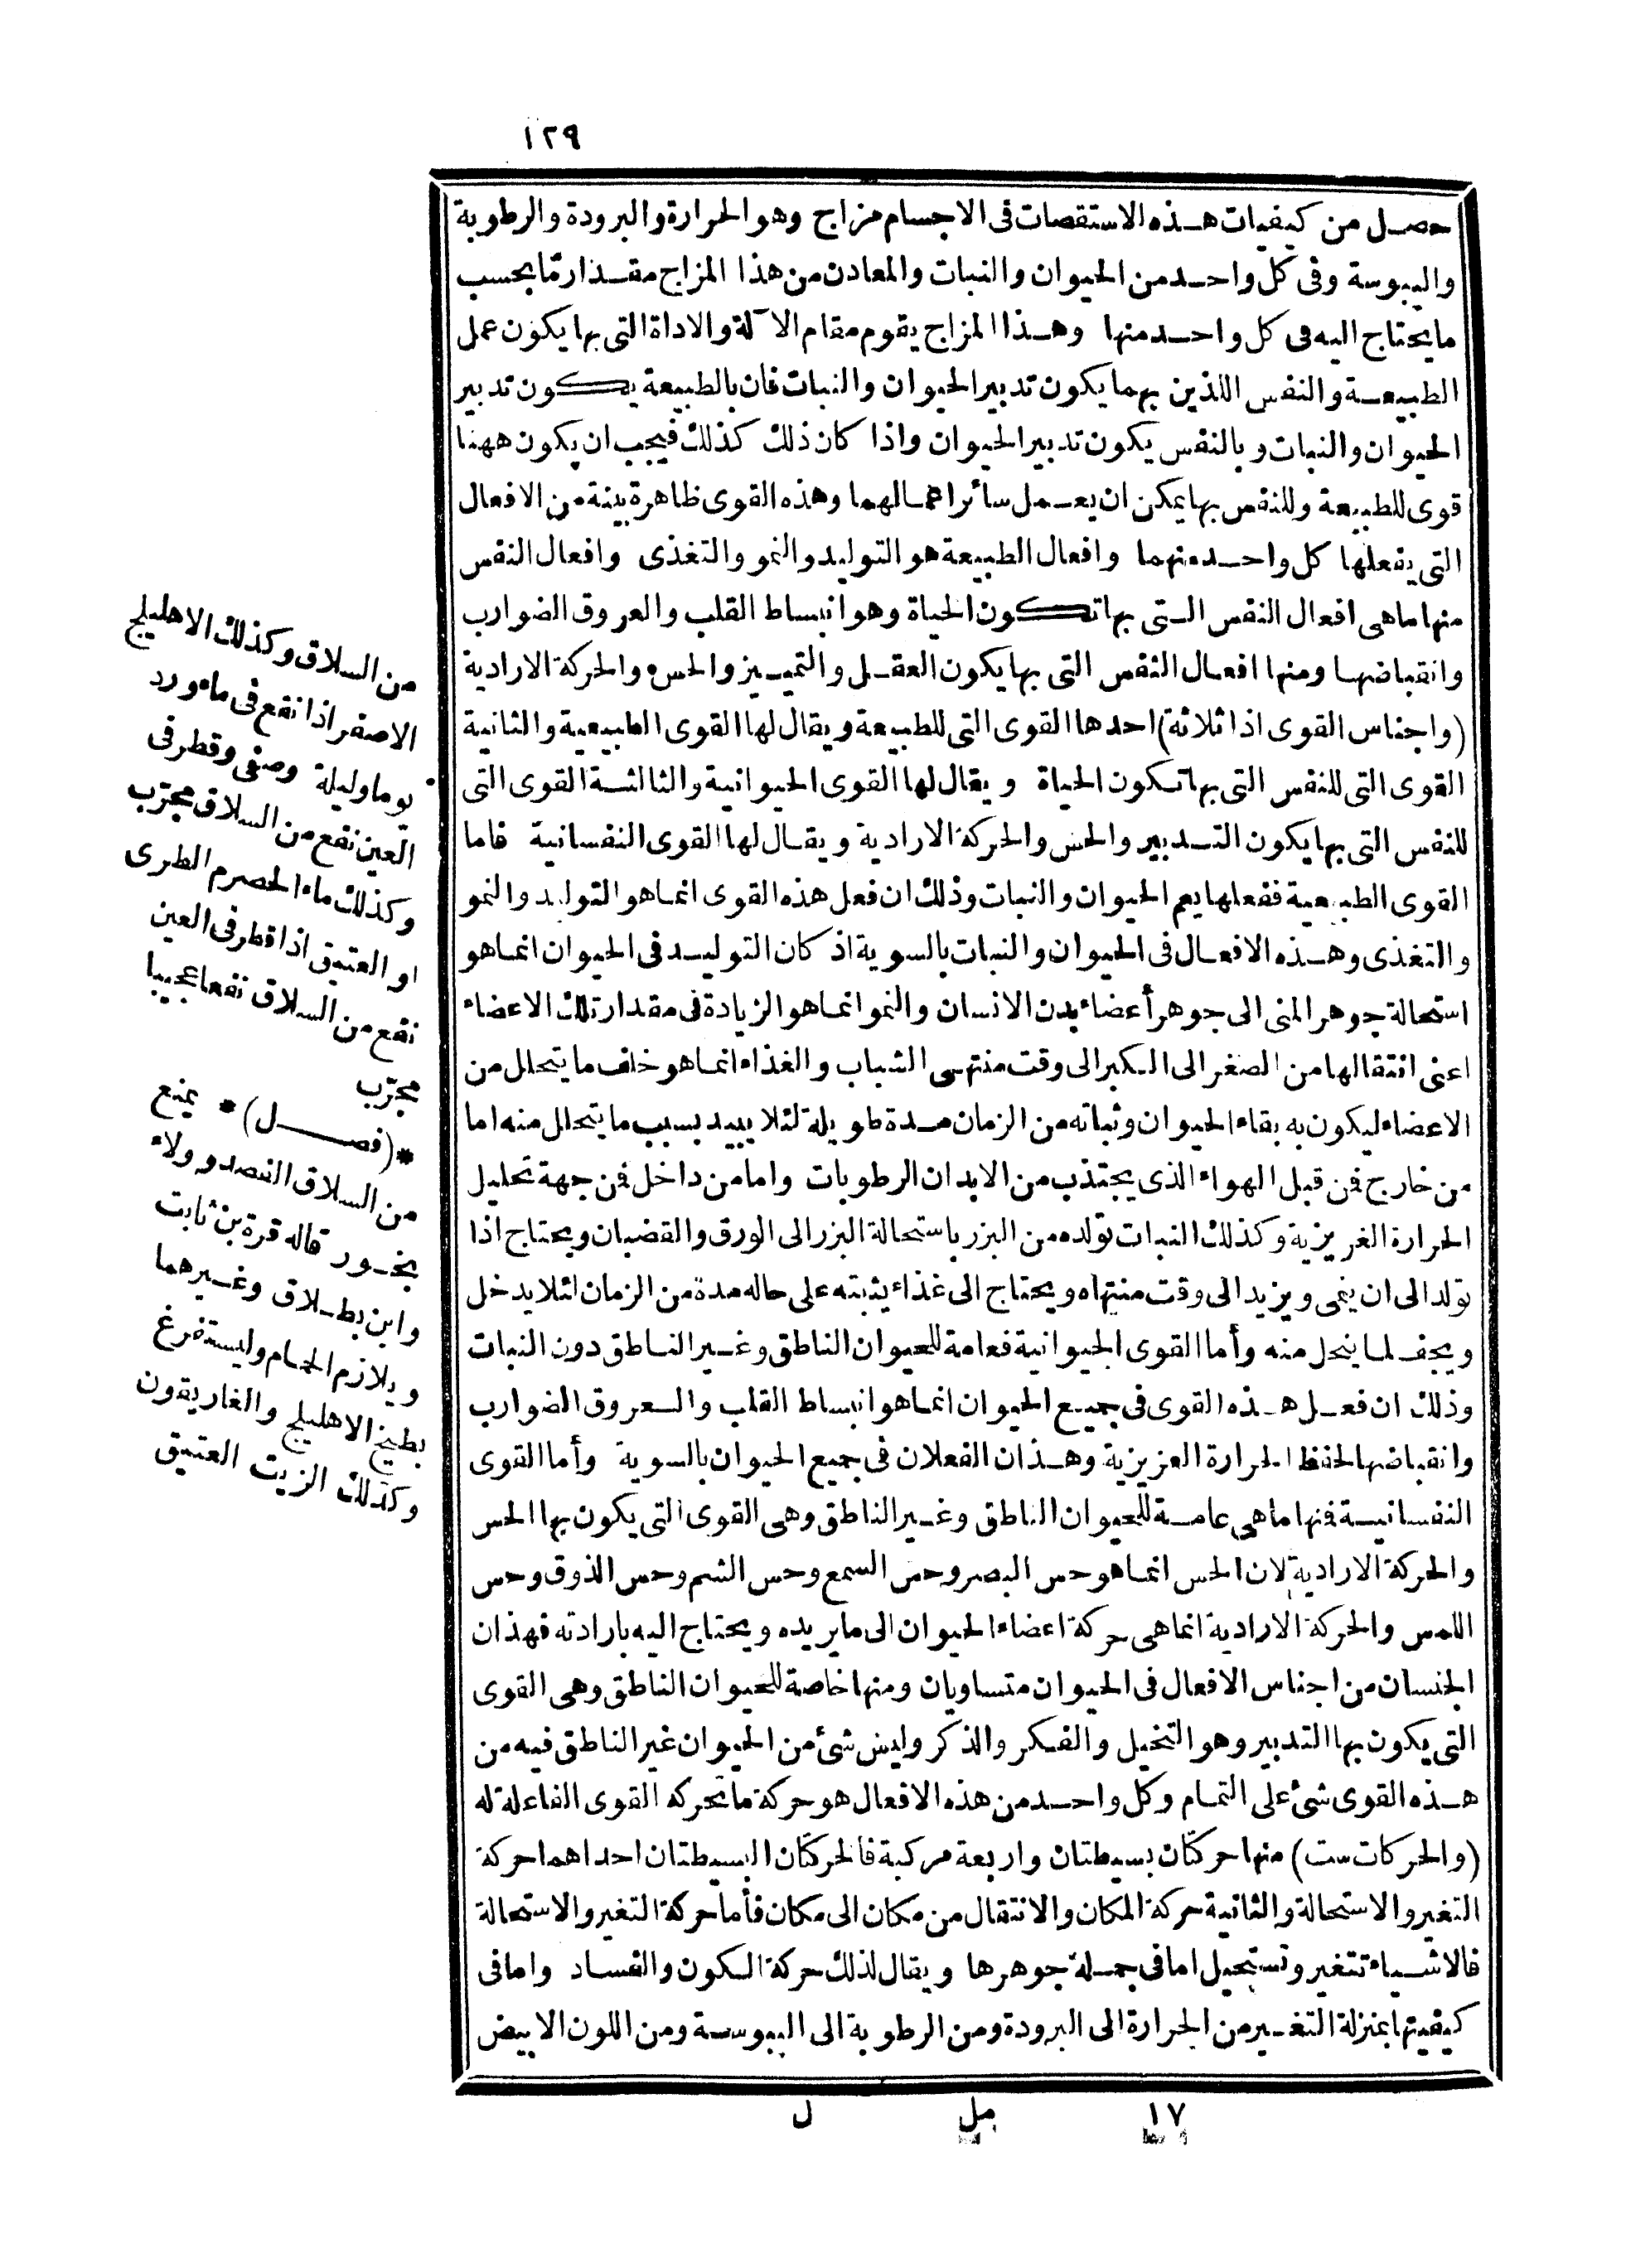 ١٢٩
حصل من كيفيات هذه الاستقصات فى الاجسام مزاج وهو الحرارة والبرودة والرطوبة
واليبوسة وفى كل واحد من الحيوان والنبات والمعادن من هذا المزاج مقدار ما بحسب
ما يحتاج اليه فى كل واحد منها وهذا المزاج يقوم مقام الآلة والاداة التى بها يكون عمل
الطبيعة والنفس اللذين بهما يكون تدبير الحيوان والنبات فان بالطبيعة يكون تدبير
الحيوان والنبات وبالنفس يكون تدبير الحيوان واذا كان ذلك كذلك فيجب ان يكون ههنا
قوى للطبيعة وللنفس بها يمكن ان يعمل سائر اعمالهما وهذه القوى ظاهرة بينة من الافعال
التى يفعلها كل واحد منهما وافعال الطبيعة هو التوليد والنمو والتغذى وافعال النفس
منها ما هى افعال النفس التى بها تكون الحياة وهو انبساط القلب والعروق الضوارب
وانقباضها ومنها افعال النفس التى بها يكون العقل والتمييز والحس والحركة الارادية
(واجناس القوى اذا ثلاثة) احدها القوى التى للطبيعة ويقال لها القوى الطبيعية والثانية
القوى التى للنفس التى بها تكون الحياة ويقال لها القوى الحيوانية والثالثة القوى التى
للنفس التى بها يكون التدبير والحس والحركة الارادية ويقال لها القوى النفسانية فاما
القوى الطبيعية ففعلها يعم الحيوان والنبات وذلك ان فعل هذه القوى انما هو التوليد والنمو
والتغذى وهذه الافعال فى الحيوان والنبات بالسوية اذ كان التوليد فى الحيوان انما هو
استحالة جوهر المنى الى جوهر أعضاء بدن الانسان والنمو انما هو الزيادة فى مقدار تلك الاعضاء
اعنى انتقالها من الصغر الى الكبر الى وقت منتهى الشباب والغذاء انما هو خلف ما يتحلل من
الاعضاء ليكون به بقاء الحيوان وثباته من الزمان مدة طويلة لئلا يبيد بسبب ما يتحلل منه اما
من خارج فمن قبل الهواء الذى يجتذب من الابدان الرطوبات واما من داخل فمن جهة تحليل
الحرارة الغريزية وكذلك النبات تولده من البزر باستحالة البزر الى الورق والقضبان ويحتاج اذا
تولد الى ان ينمى ويزيد الى وقت منتهاه ويحتاج الى غذاء يثبته على حاله مدة من الزمان لئلا يدخل
ويجف لما ينحل منه وأما القوى الحيوانية فعامة للحيوان الناطق وغير الناطق دون النبات
وذلك ان فعل هذه القوى فى جميع الحيوان انما هو انبساط القلب والعروق الضوارب
وانقباضها لحفظ الحرارة العزيزية وهذان الفعلان فى جميع الحيوان بالسوية وأما القوى
النفسانية فمنها ما هى عامة للحيوان الناطق وغير الناطق وهى القوى التى يكون بها الحس
والحركة الارادية لان الحس انما هو حس البصر وحس السمع وحس الشم وحس الذوق وحس
اللمس والحركة الارادية انما هى حركة اعضاء الحيوان الى ما يريده ويحتاج اليه بارادته فهذان
الجنسان من اجناس الافعال فى الحيوان متساويان ومنها خاصة للحيوان الناطق وهى القوى
التى يكون بها التدبير وهو التخيل والفكر والذكر وليس شئ من الحيوان غير الناطق فيه من
هذه القوى شئ على التمام وكل واحد من هذه الافعال هو حركة ما تحركه القوى الفاعلة له
(والحركات ست) منها حركتان بسيطتان واربعة مركبة فالحركتان البسيطتان احداهما حركة
التغير والاستحالة والثانية حركة المكان والانتقال من مكان الى مكان فأما حركة التغير والاستحالة
فالاشياء تتغير وتستحيل اما فى جملة جوهرها ويقال لذلك حركة الكون والفساد واما فى
كيفيتها بمنزلة التغير من الحرارة الى البرودة ومن الرطوبة الى اليبوسة ومن اللون الابيض
من السلاق وكذلك الاهليلج
الاصفر اذا نقع فى ماء ورد
يوما وليلة وصفى وقطر فى
العين نقع من السلاق مجرّب
وكذلك ماء الحصرم الطرى
او العتيق اذا قطر فى العين
نفع من السلاق نفعا عجيبا
مجرّب
*(فصل)* يمنع
من السلاق الفصد وولاء
بخور قاله قرة بن ثابت
وابن بطلاق وغيرهما
ويلازم الحمام وليستفرغ
بطبيخ الاهليلج والغاريقون
وكذلك الزيت العتيق
١٧ مل ل